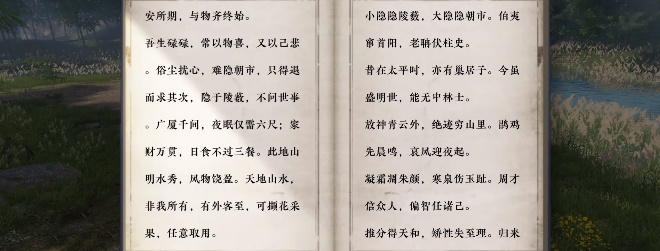 安所期，与物齐终始。
吾生碌碌，常以物喜，又以己悲
。俗尘扰心，难隐朝市，只得退
而求其次，隐于陵薮，不问世事
。广厦千间，夜眠仅需六尺；家
财万贯，日食不过三餐。此地山
明水秀，风物饶盈。天地山水，
非我所有，有外客至，可撷花采
果，任意取用。
小隐隐陵薮，大隐隐朝市。伯夷
窜首阳，老聃伏柱史。
昔在太平时，亦有巢居子。今虽
盛明世，能无中林士。
放神青云外，绝迹穷山里。鹍鸡
先晨鸣，哀风迎夜起。
凝霜凋朱颜，寒泉伤玉趾。周才
信众人，偏智任诸己。
推分得天和，矫性失至理。归来